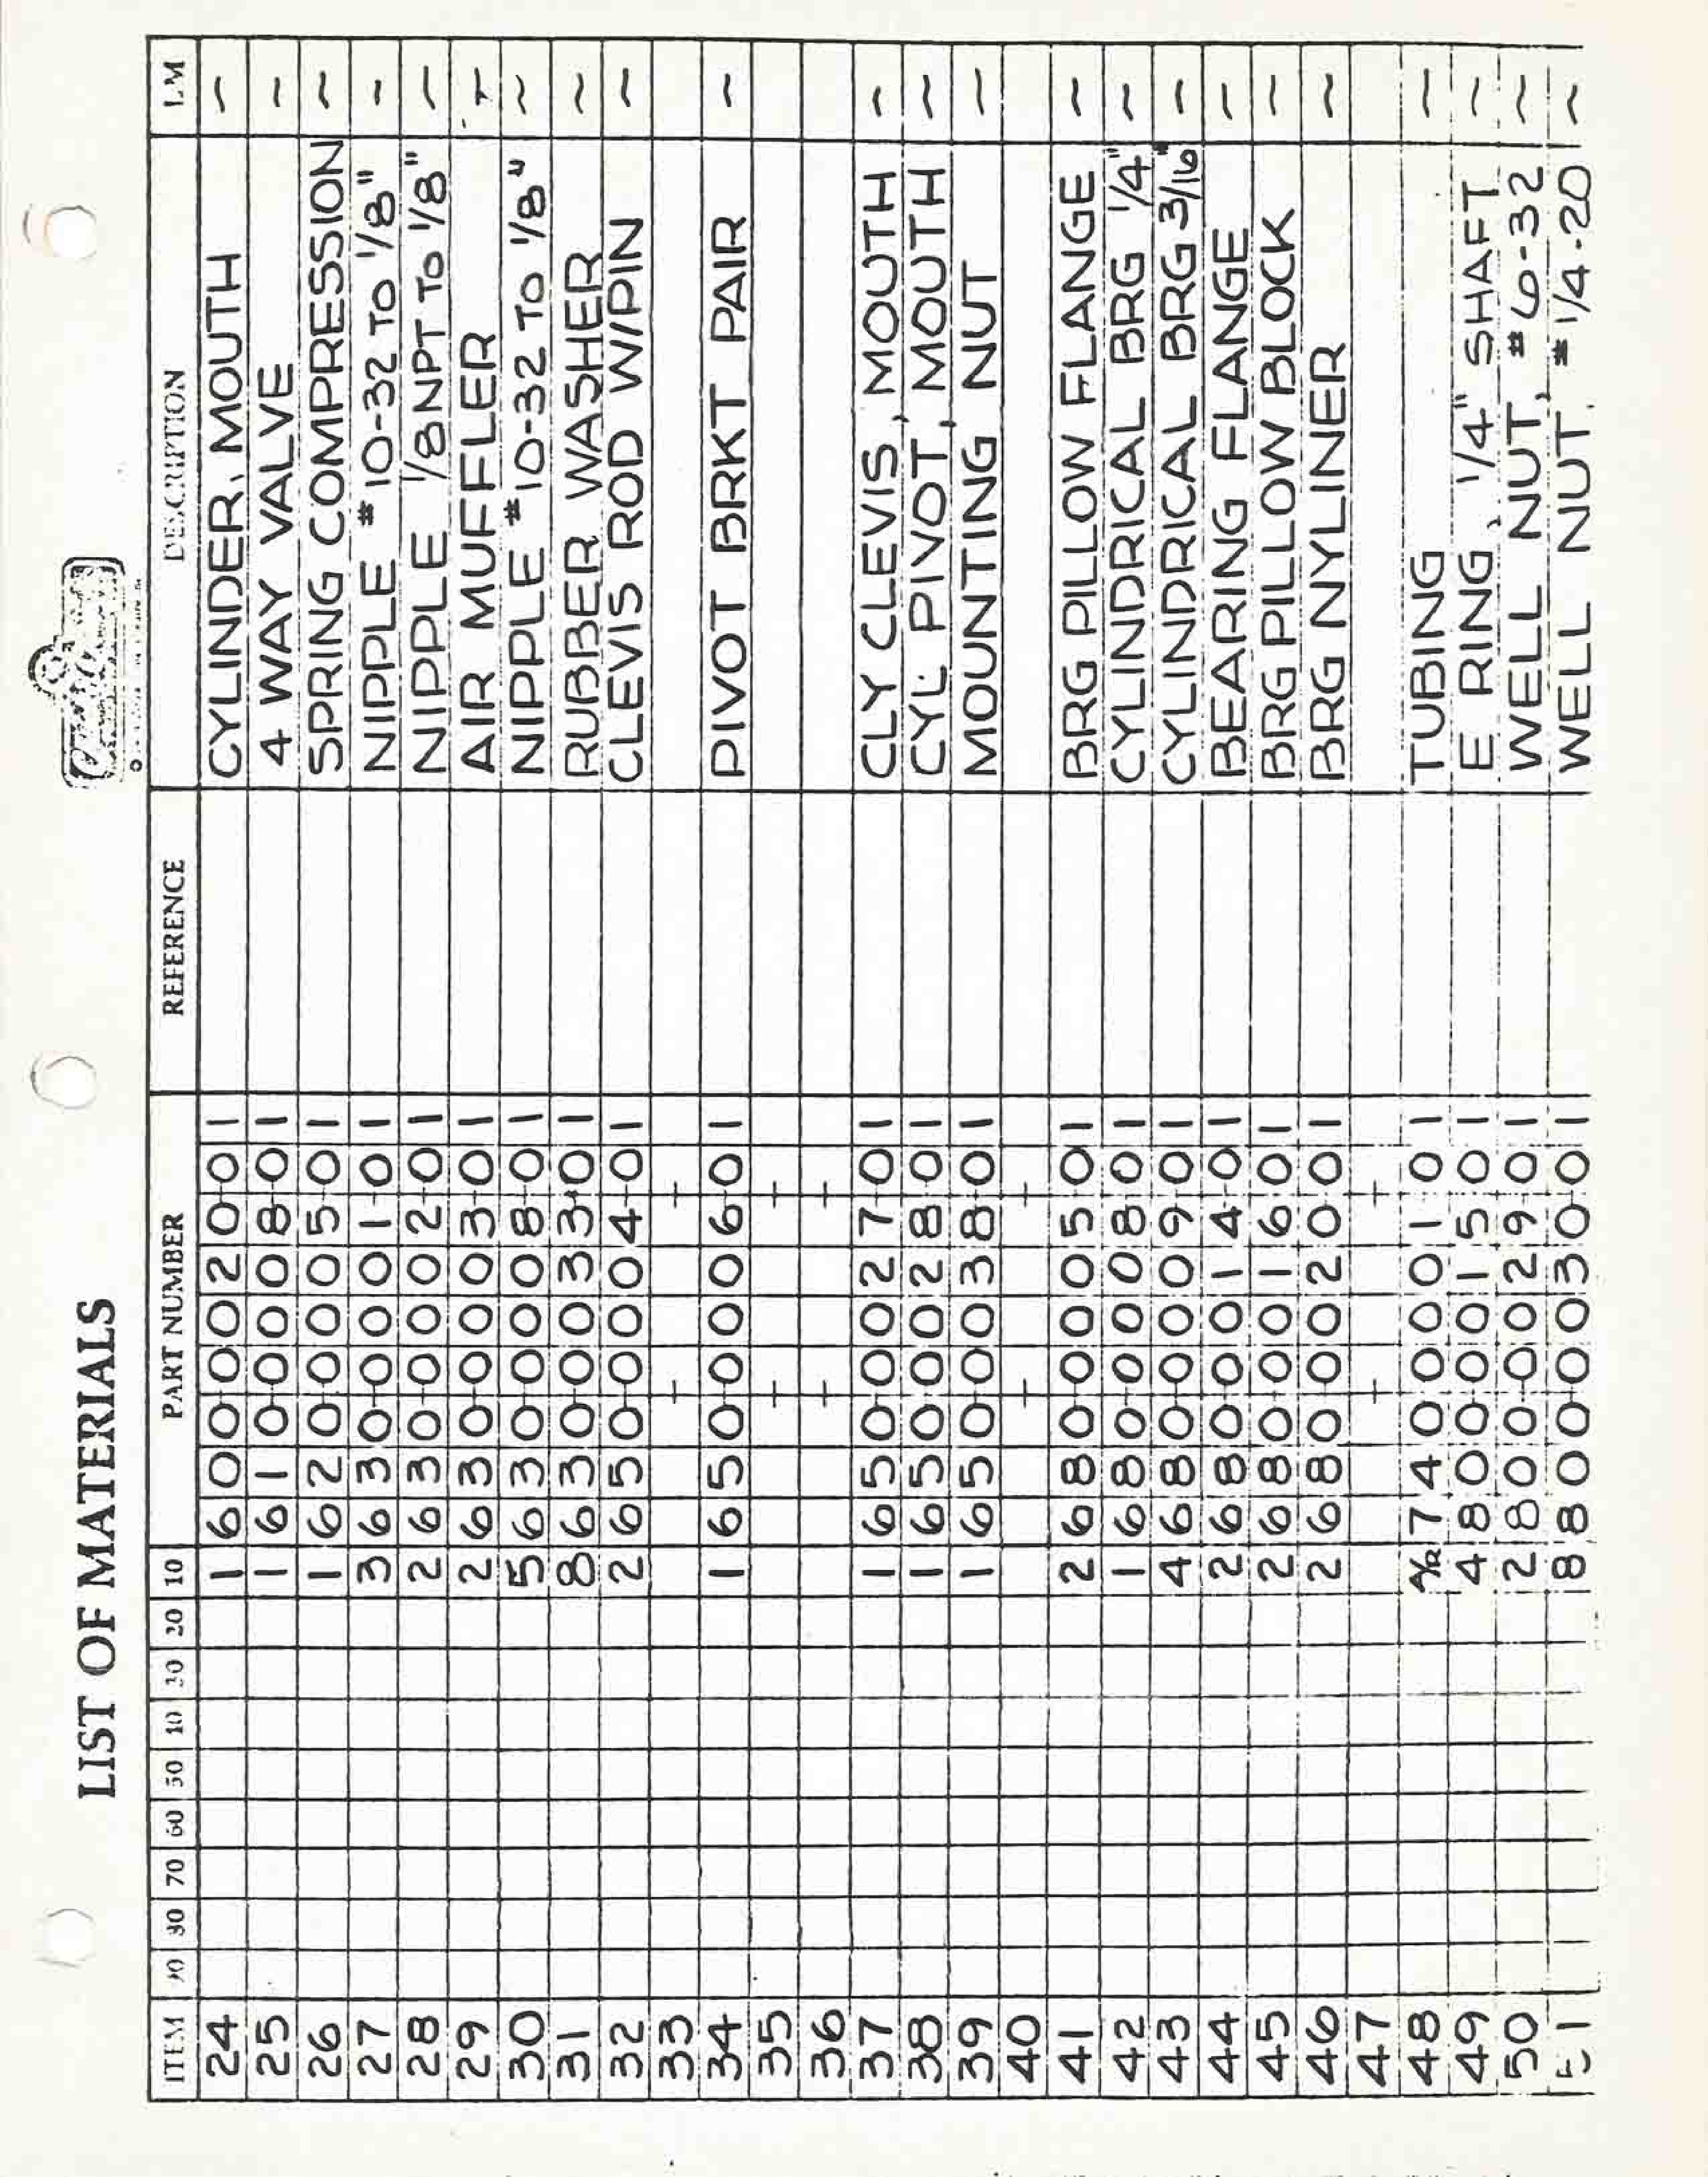 LIST OF MATERIALS
ITEM 90 80 70 60 50 40 30 20 10 PART NUMBER REFERENCE DESCRIPTION
24 1 600-0020-01 CYLINDER, MOUTH ~
25 1 610-0008-01 4 WAY VALVE ~
26 1 620-0005-01 SPRING COMPRESSION ~
27 3 630-0001-01 NIPPLE #10-32 TO 1/8" ~
28 2 630-0002-01 NIPPLE 1/8 NPT TO 1/8" ~
29 2 630-0003-01 AIR MUFFLER ~
30 5 630-0008-01 NIPPLE #10-32 TO 1/8" ~
31 8 630-0033-01 RUBBER WASHER ~
32 2 650-0004-01 CLEVIS ROD W/PIN ~
33
34 1 650-0006-01 PIVOT BRKT PAIR ~
35
36
37 1 650-0027-01 CLY CLEVIS, MOUTH ~
38 1 650-0028-01 CYL. PIVOT, MOUTH ~
39 1 650-0038-01 MOUNTING NUT ~
40
41 2 680-0005-01 BRG PILLOW FLANGE ~
42 1 680-0008-01 CYLINDRICAL BRG 1/4" ~
43 4 680-0009-01 CYLINDRICAL BRG 3/16" ~
44 2 680-0014-01 BEARING FLANGE ~
45 2 680-0016-01 BRG PILLOW BLOCK ~
46 2 680-0020-01 BRG NYLINER ~
47
48 A/R 740-0001-01 TUBING ~
49 4 800-0015-01 E RING, 1/4" SHAFT ~
50 2 800-0029-01 WELL NUT, #6-32 ~
51 8 800-0030-01 WELL NUT, #1/4-20 ~